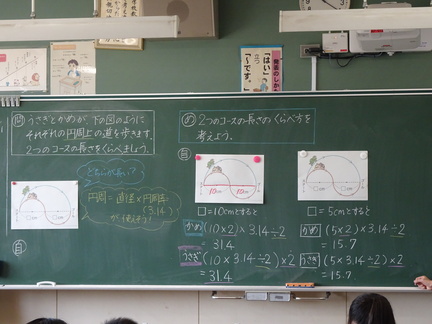 問 うさぎとかめが、下の図のように
それぞれの円周上の道を歩きます。
2つのコースの長さをくらべましょう。
どちらが長い?
円周=直径×円周率
(3.14)
が使えそう!
自
め 2つのコースの長さのくらべ方を
考えよう。
自
10cm 10cm
□=10cmとすると
かめ (10×2)×3.14÷2
=31.4
うさぎ (10×3.14÷2)×2
=31.4
□=5cmとすると
かめ (5×2)×3.14÷2
=15.7
うさぎ (5×3.14÷2)×2
=15.7
「はい」
立つ
「~です。」